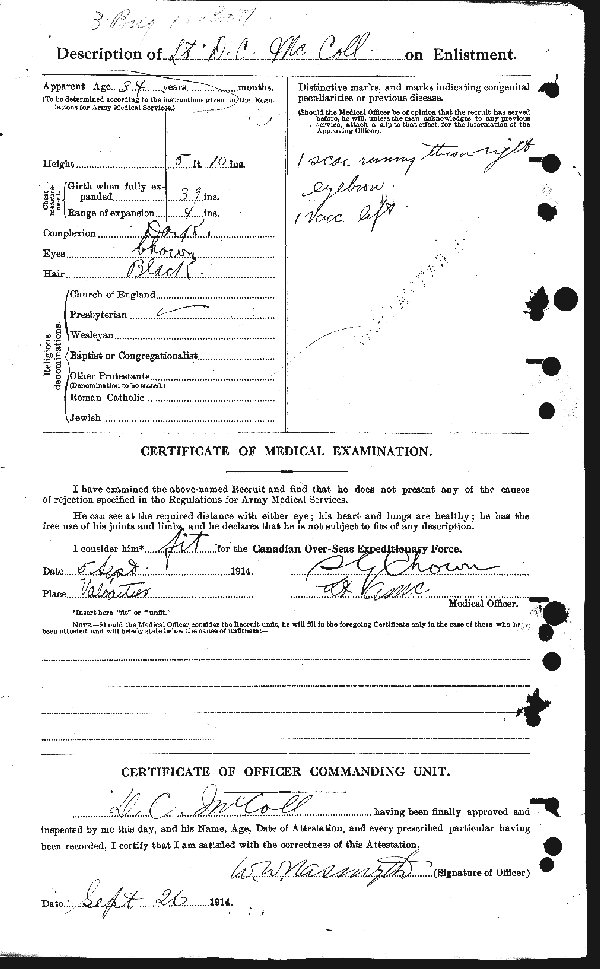 Description of Lt D. C. Mc Coll on Enlistment.
Apparent Age 34 years months.
(To be determined according to the instructions given in the Regulations for Army Medical Services.)
Height 5 ft. 10 ins.
Chest Measurement.
Girth when fully expanded 39 ins.
Range of expansion 4 ins.
Complexion Dark
Eyes brown
Hair Black
Religious denominations.
Church of England
Presbyterian
Wesleyan
Baptist or Congregationalist
Other Protestants
(Denomination to be stated.)
Roman Catholic
Jewish
Distinctive marks, and marks indicating congenital
peculiarities or previous disease.
(Should the Medical Officer be of opinion that the recruit has served
before, he will, unless the man acknowledges to any previous
service, attach a slip to that effect, for the information of the
Approving Officer).
1 scar running through right
eyebrow.
1 Vacc left
CERTIFICATE OF MEDICAL EXAMINATION.
I have examined the above-named Recruit and find that he does not present any of the causes
of rejection specified in the Regulations for Army Medical Services.
He can see at the required distance with either eye; his heart and lungs are healthy; he has the
free use of his joints and limbs, and he declares that he is not subject to fits of any description.
I consider him* fit for the Canadian Over-Seas Expeditionary Force.
Date 5 Sept. 1914.
Place Valcartier
Medical Officer.
*Insert here "fit" or "unfit."
NOTE.—Should the Medical Officer consider the Recruit unfit, he will fill in the foregoing Certificate only in the case of those who have
been attested, and will briefly state below the cause of unfitness:—
CERTIFICATE OF OFFICER COMMANDING UNIT.
D. C. McColl having been finally approved and
inspected by me this day, and his Name, Age, Date of Attestation, and every prescribed particular having
been recorded, I certify that I am satisfied with the correctness of this Attestation.
(Signature of Officer)
Date Sept 26 1914.